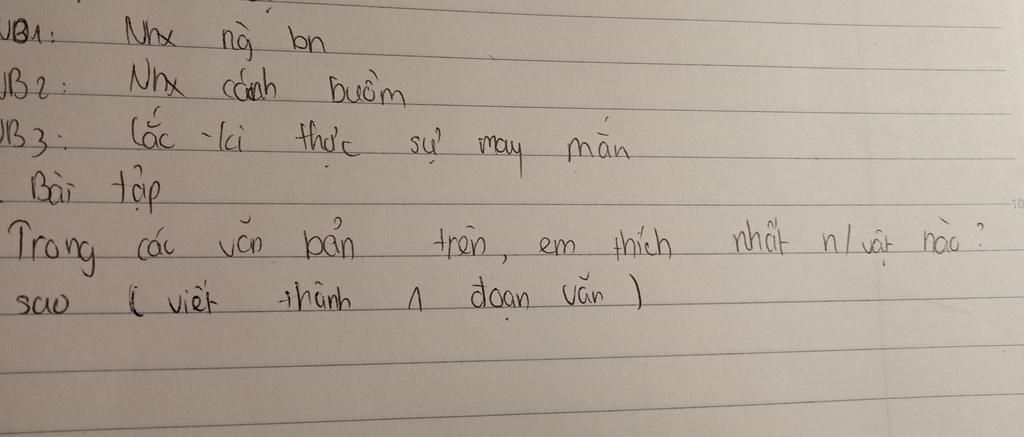 VB1: Nhx ng` bn
VB2: Nhx cánh buồm
VB3: Lắc-ki thực sự may mắn
Bài tập
Trong các văn bản trên, em thích nhất n/vật nào?
sao (viết thành 1 đoạn văn)
10